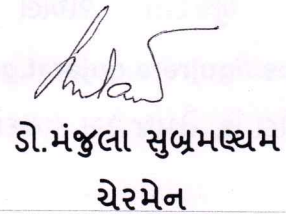 ડો.મંજુલા સુબ્રમણ્યમ
ચેરમેન